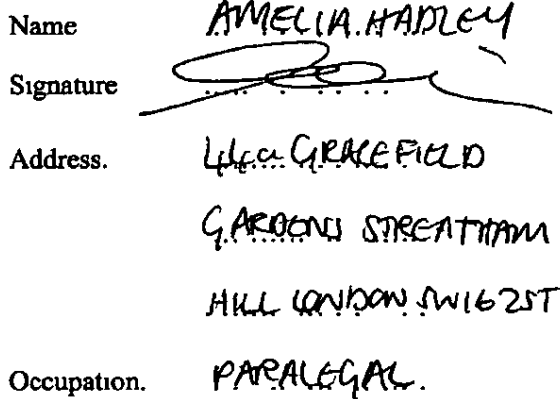 Name AMELIA.HADLEY
Signature
Address. 44a GRACEFIELD
GARDENS STREATHAM
HILL LONDON SW16 2ST
Occupation. PARALEGAL.